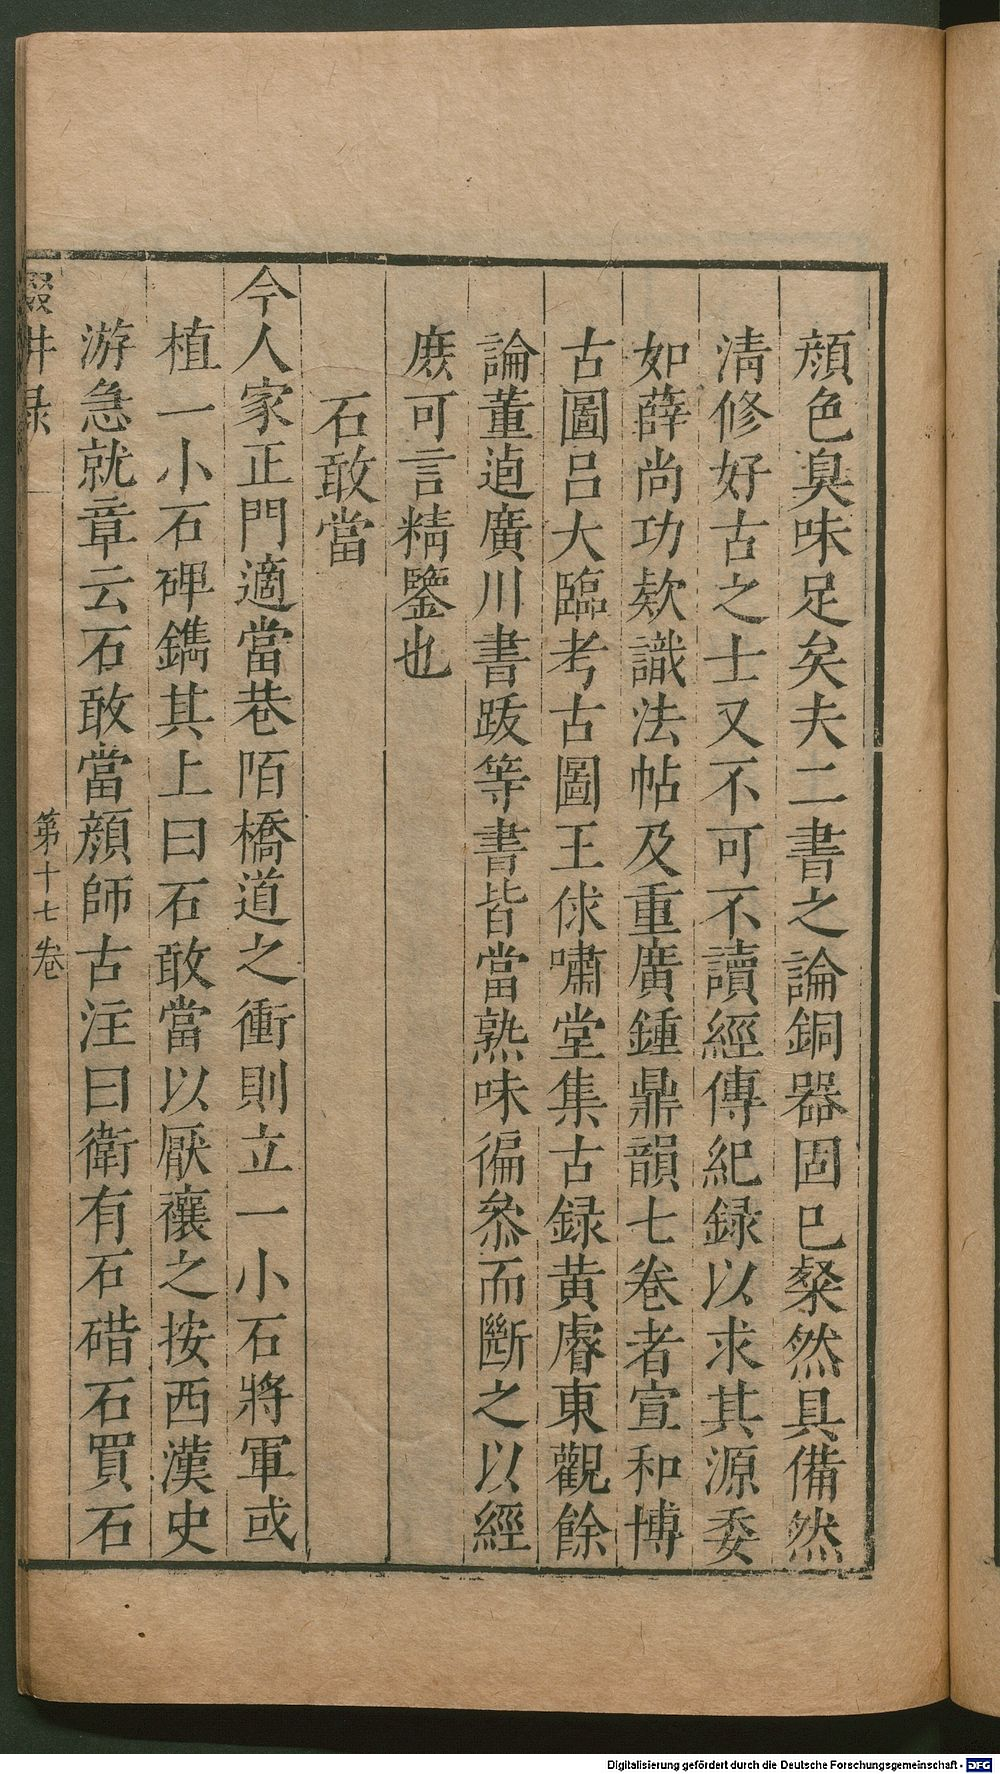 顔色臭味足矣夫二書之論銅器固已粲然具備然
清修好古之士又不可不讀經傳紀録以求其源委
如薛尚功欵識法帖及重廣鍾鼎韻七卷者宣和博
古圖吕大臨考古圖王俅嘯堂集古録黄睿東觀餘
論董逌廣川書䟦等書皆當熟味徧叅而斷之以經
庶可言精鑒也
石敢當
今人家正門適當巷陌橋道之衝則立一小石將軍或
植一小石碑鐫其上曰石敢當以厭禳之按西漢史
游急就章云石敢當顔師古注曰衛有石碏石買石
輟畊录
第十七卷
Digitalisierung gefördert durch die Deutsche Forschungsgemeinschaft - DFG